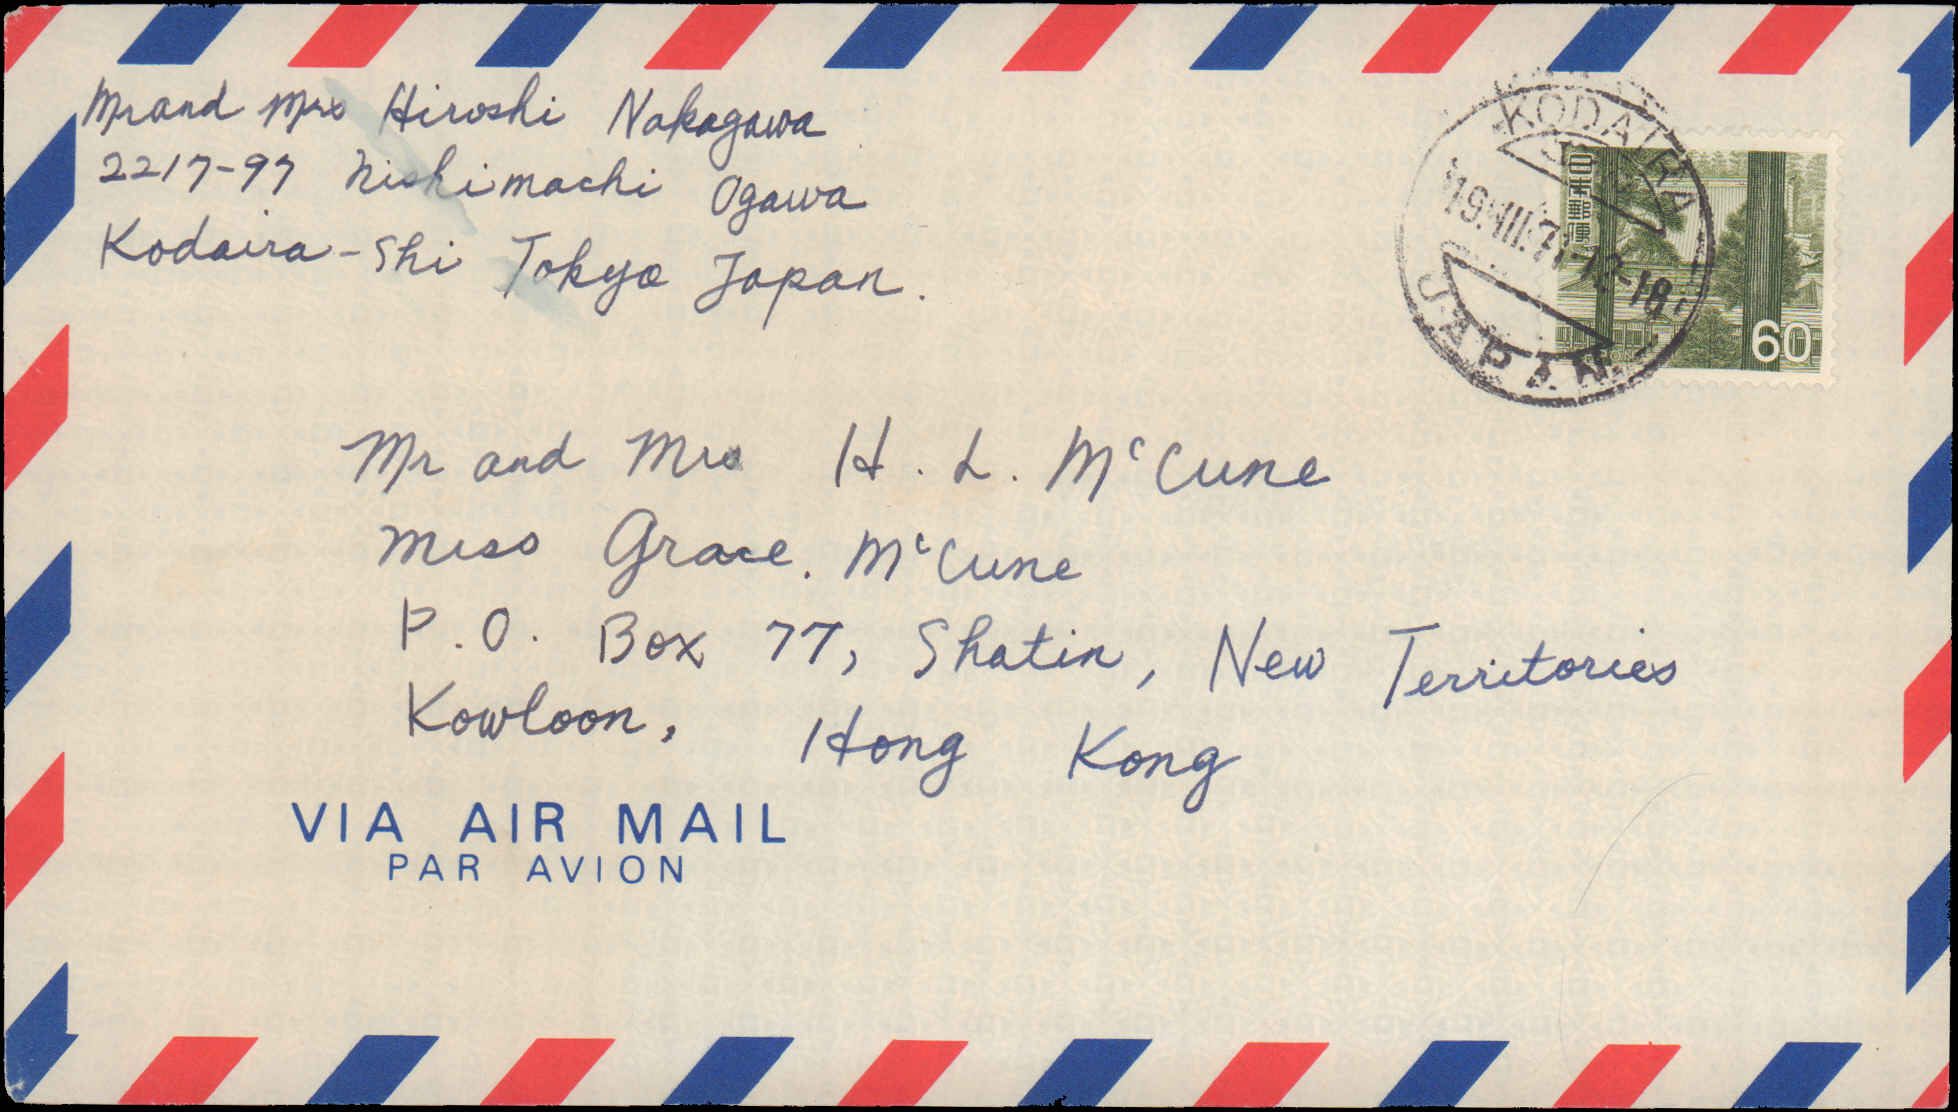 Mr and Mrs Hiroshi Nakagawa
2217-97 Nishimachi Ogawa
Kodaira-Shi Tokyo Japan.
KODAIRA
19.VIII.71.12-18
JAPAN
日本郵便
60
Mr and Mrs H. L. McCune
Miss Grace. McCune
P.O. Box 77, Shatin, New Territories
Kowloon, Hong Kong
VIA AIR MAIL
PAR AVION